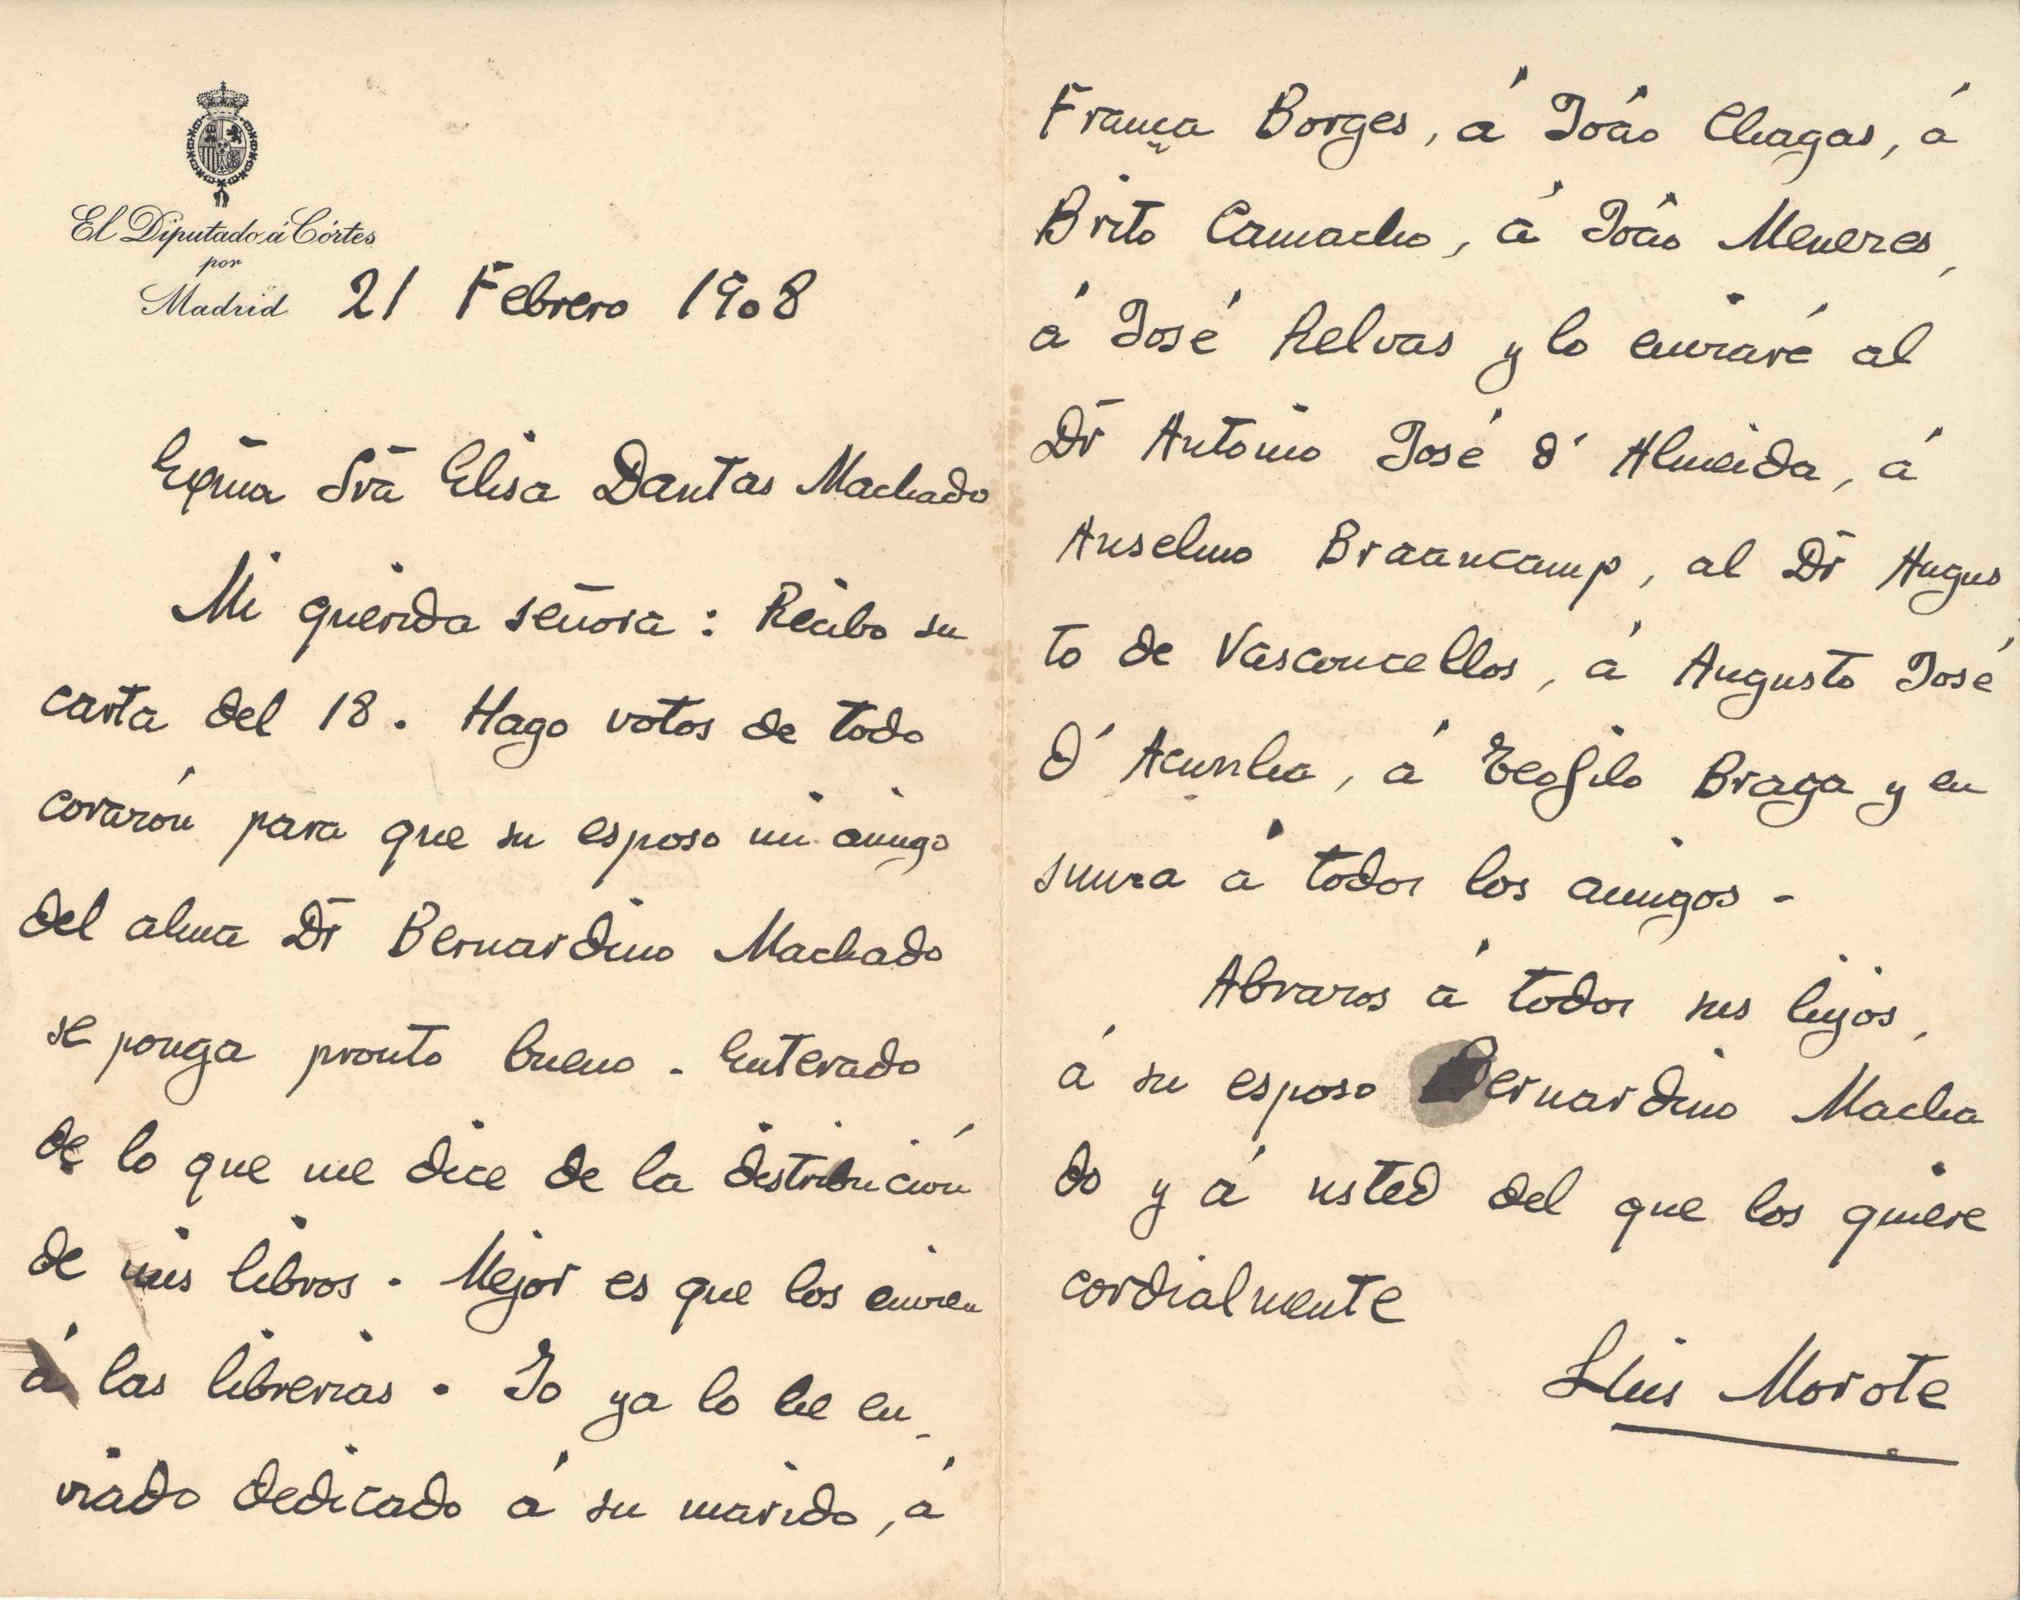 El Diputado á Córtes
por
Madrid 21 Febrero 1908
Exma Sra Elisa Dantas Machado
Mi querida señora: Recibo su
carta del 18. Hago votos de todo
corazón para que su esposo mi amigo
del alma Dr Bernardino Machado
se ponga pronto bueno. Enterado
de lo que me dice de la distribución
de mis libros. Mejor es que los envien
á las librerias. Yo ya lo he en-
viado dedicado á su marido, á
França Borges, á Joâo Chagas, á
Brito Camacho, á Joâo Menezes,
á José Relvas y lo enviaré al
Dr Antonio José d'Almeida, á
Anselmo Braancamp, al Dr Augus
to de Vasconcellos, á Augusto José
d'Acunha, á Teofilo Braga y en
suma á todos los amigos-
Abrazos á todos sus hijos,
á su esposo Bernardino Macha
do y á usted del que los quiere
cordialmente
Luis Morote